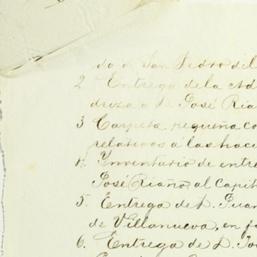 do a San Pedro del
2 Entrega de la
driza a D. José Ria
3 Carpeta pequeña co
relativos a las haci
4. Inventario de entre
José Riaño, al Capit
5. Entrega de D. Juan
de Villanueva, en fa
6. Entrega de D. Jo